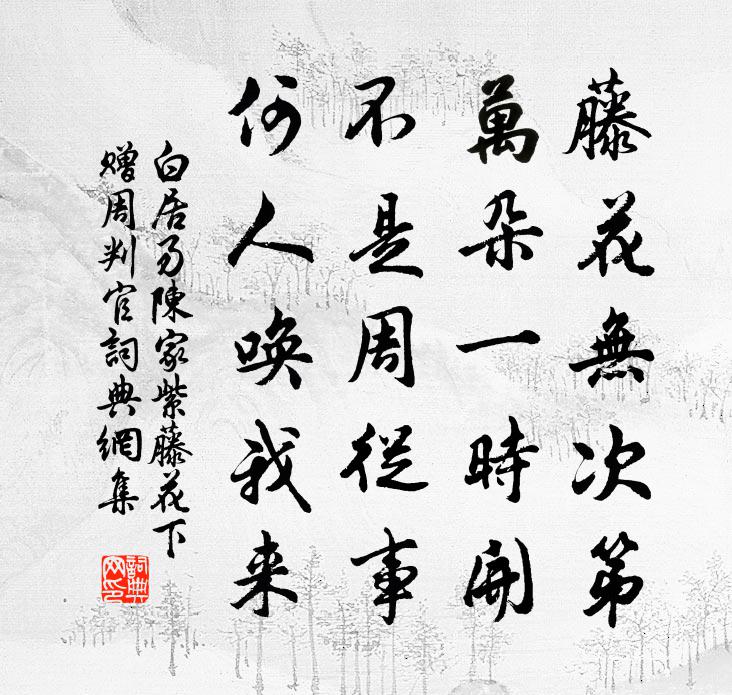 藤花無次第
萬朵一時開
不是周從事
何人喚我来
白居易陳家紫藤花下
贈周判官詞典網集
詞典
网印